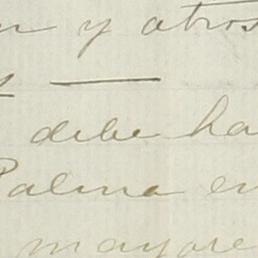 y otros
debe ha
Palma en
mayore